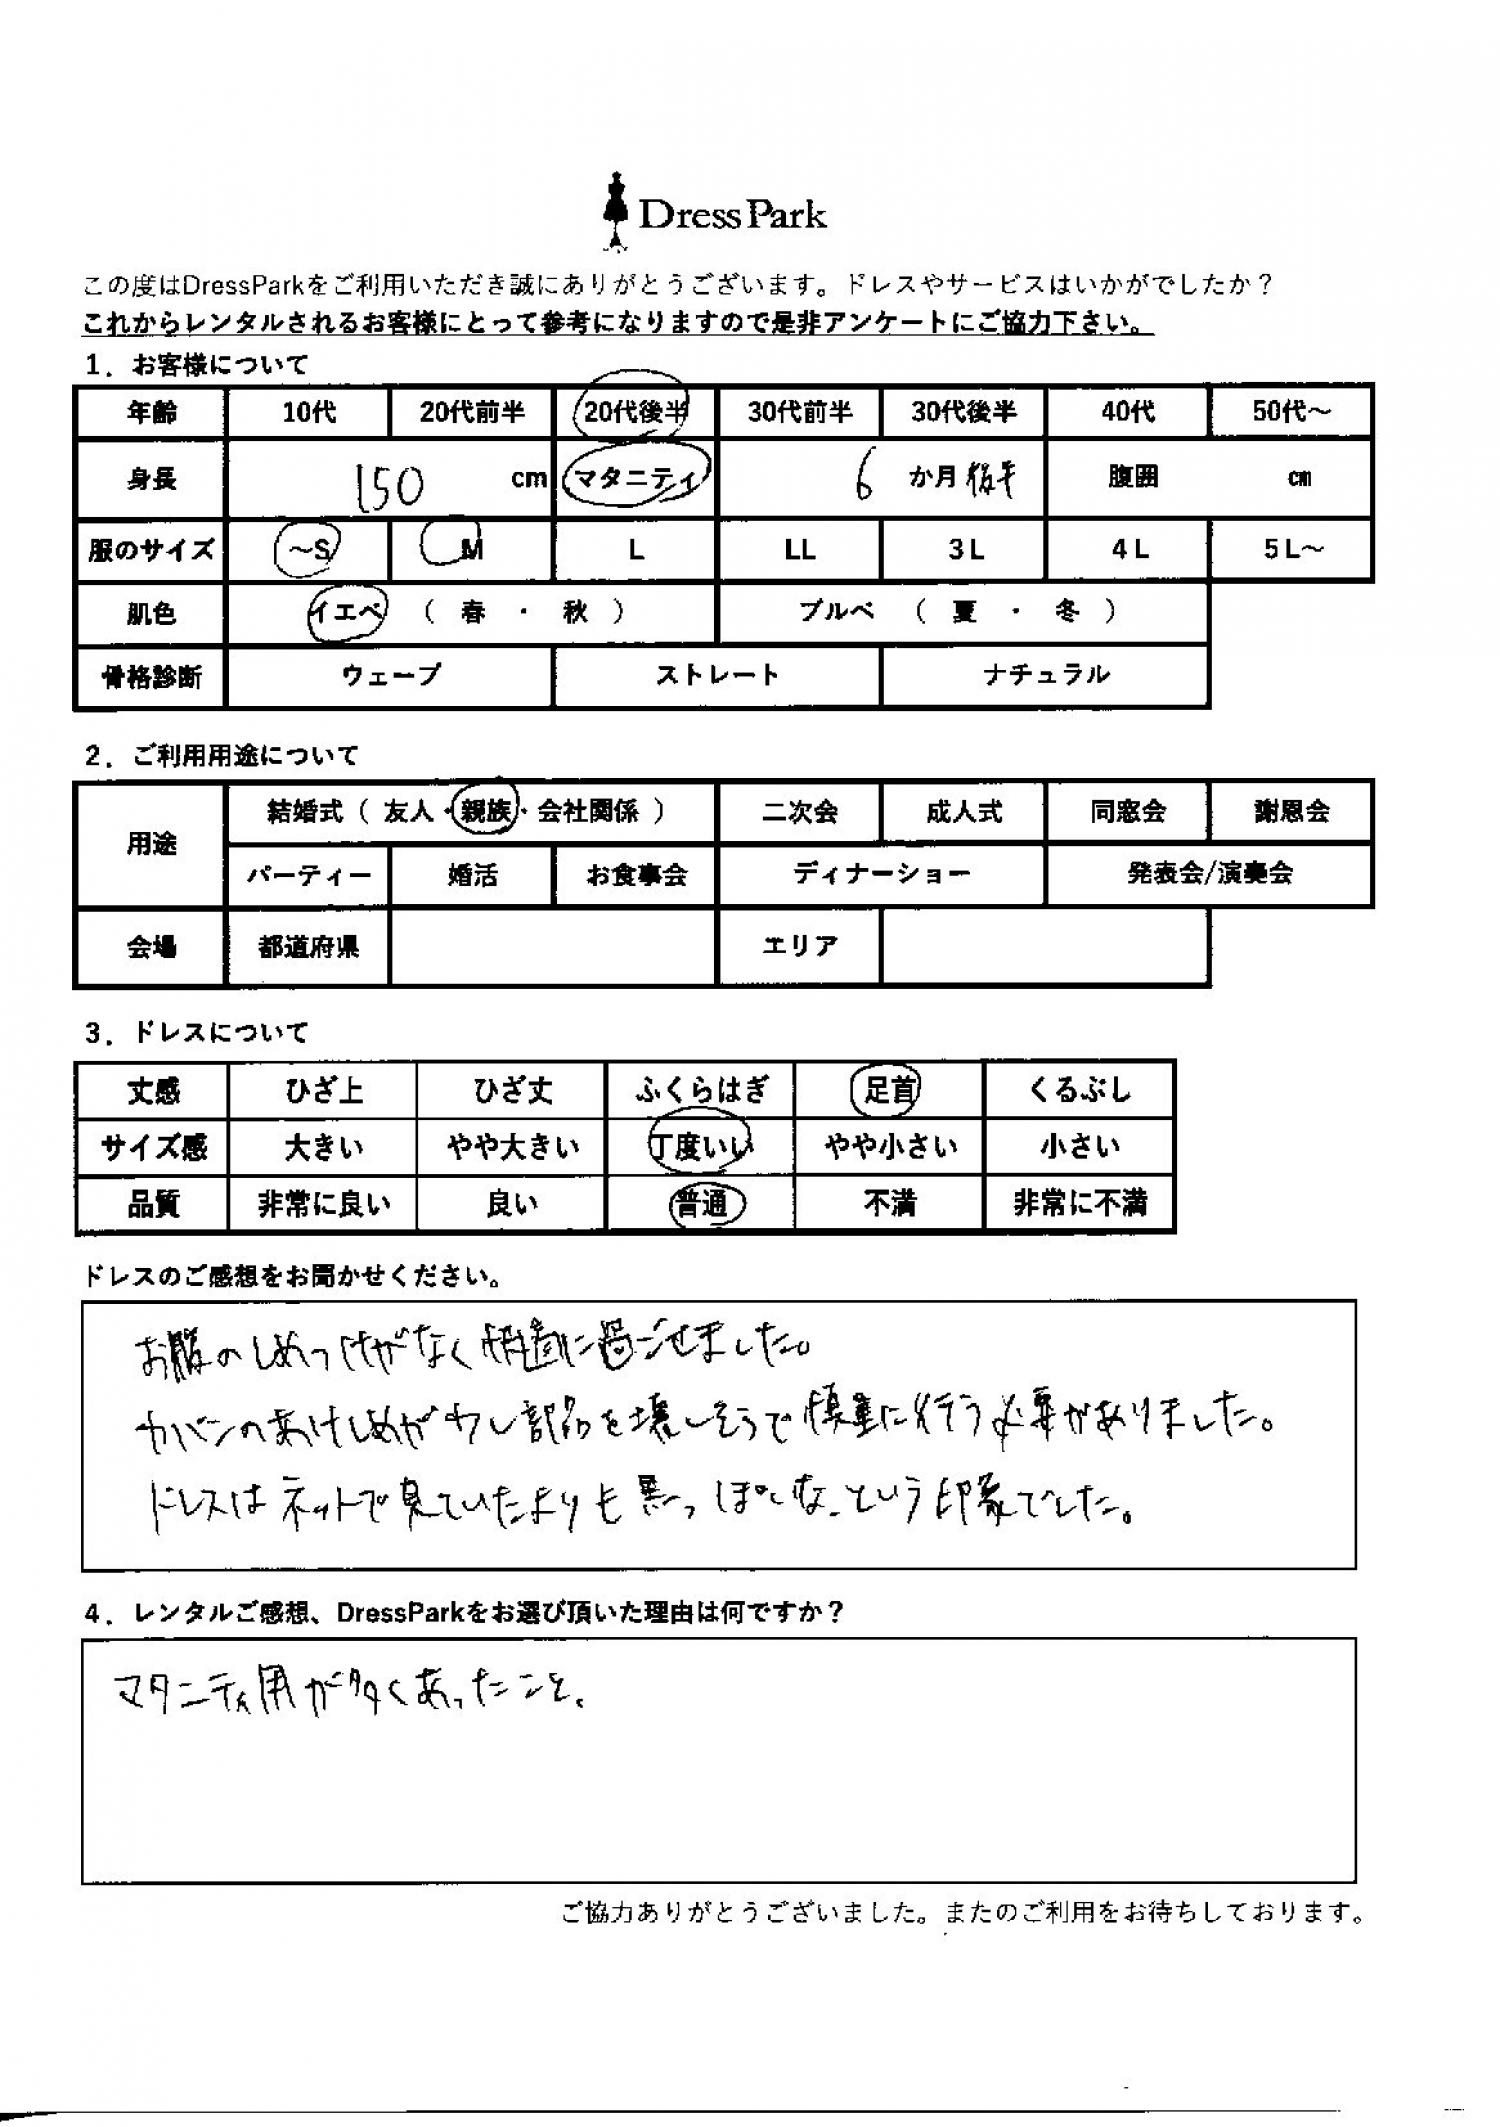 DressPark
この度はDressParkをご利用いただき誠にありがとうございます。ドレスやサービスはいかがでしたか？
これからレンタルされるお客様にとって参考になりますので是非アンケートにご協力下さい。
1．お客様について
年齢 10代 20代前半 20代後半 30代前半 30代後半 40代 50代～
身長 150 cm マタニティ 6 か月 後半 腹囲 cm
服のサイズ ～S M L LL 3L 4L 5L～
肌色 イエベ （ 春 ・ 秋 ） ブルベ （ 夏 ・ 冬 ）
骨格診断 ウェーブ ストレート ナチュラル
2．ご利用用途について
用途 結婚式（ 友人・親族・会社関係 ） 二次会 成人式 同窓会 謝恩会
パーティー 婚活 お食事会 ディナーショー 発表会/演奏会
会場 都道府県 エリア
3．ドレスについて
丈感 ひざ上 ひざ丈 ふくらはぎ 足首 くるぶし
サイズ感 大きい やや大きい 丁度いい やや小さい 小さい
品質 非常に良い 良い 普通 不満 非常に不満
ドレスのご感想をお聞かせください。
お腹のしめつけがなく快適に過ごせました。
カバンのあけしめが少し部品を壊しそうで慎重に行う必要がありました。
ドレスはネットで見ていたよりも黒っぽいな、という印象でした。
4．レンタルご感想、DressParkをお選び頂いた理由は何ですか？
マタニティ用が多くあったこと。
ご協力ありがとうございました。またのご利用をお待ちしております。